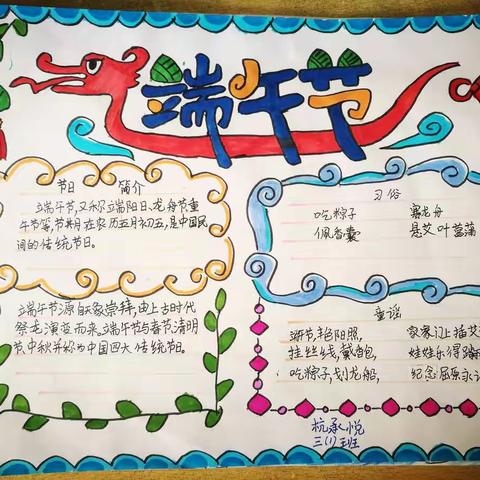 端午节
节日 简介
端午节,又称端阳日、龙舟节重
午节等,节期在农历五月初五,是中国民
间的传统节日。
端午节源自天象崇拜,由上古时代
祭龙演变而来,端午节与春节清明
节中秋并称为中国四大传统节日。
习俗
吃粽子 赛龙舟
佩香囊 悬艾叶菖蒲
童谣
端午节,艳阳照, 家家门上插艾
挂丝线,戴香包, 娃娃乐得蹦
吃粽子,划龙船, 纪念屈原永
杭承悦
三(1)班